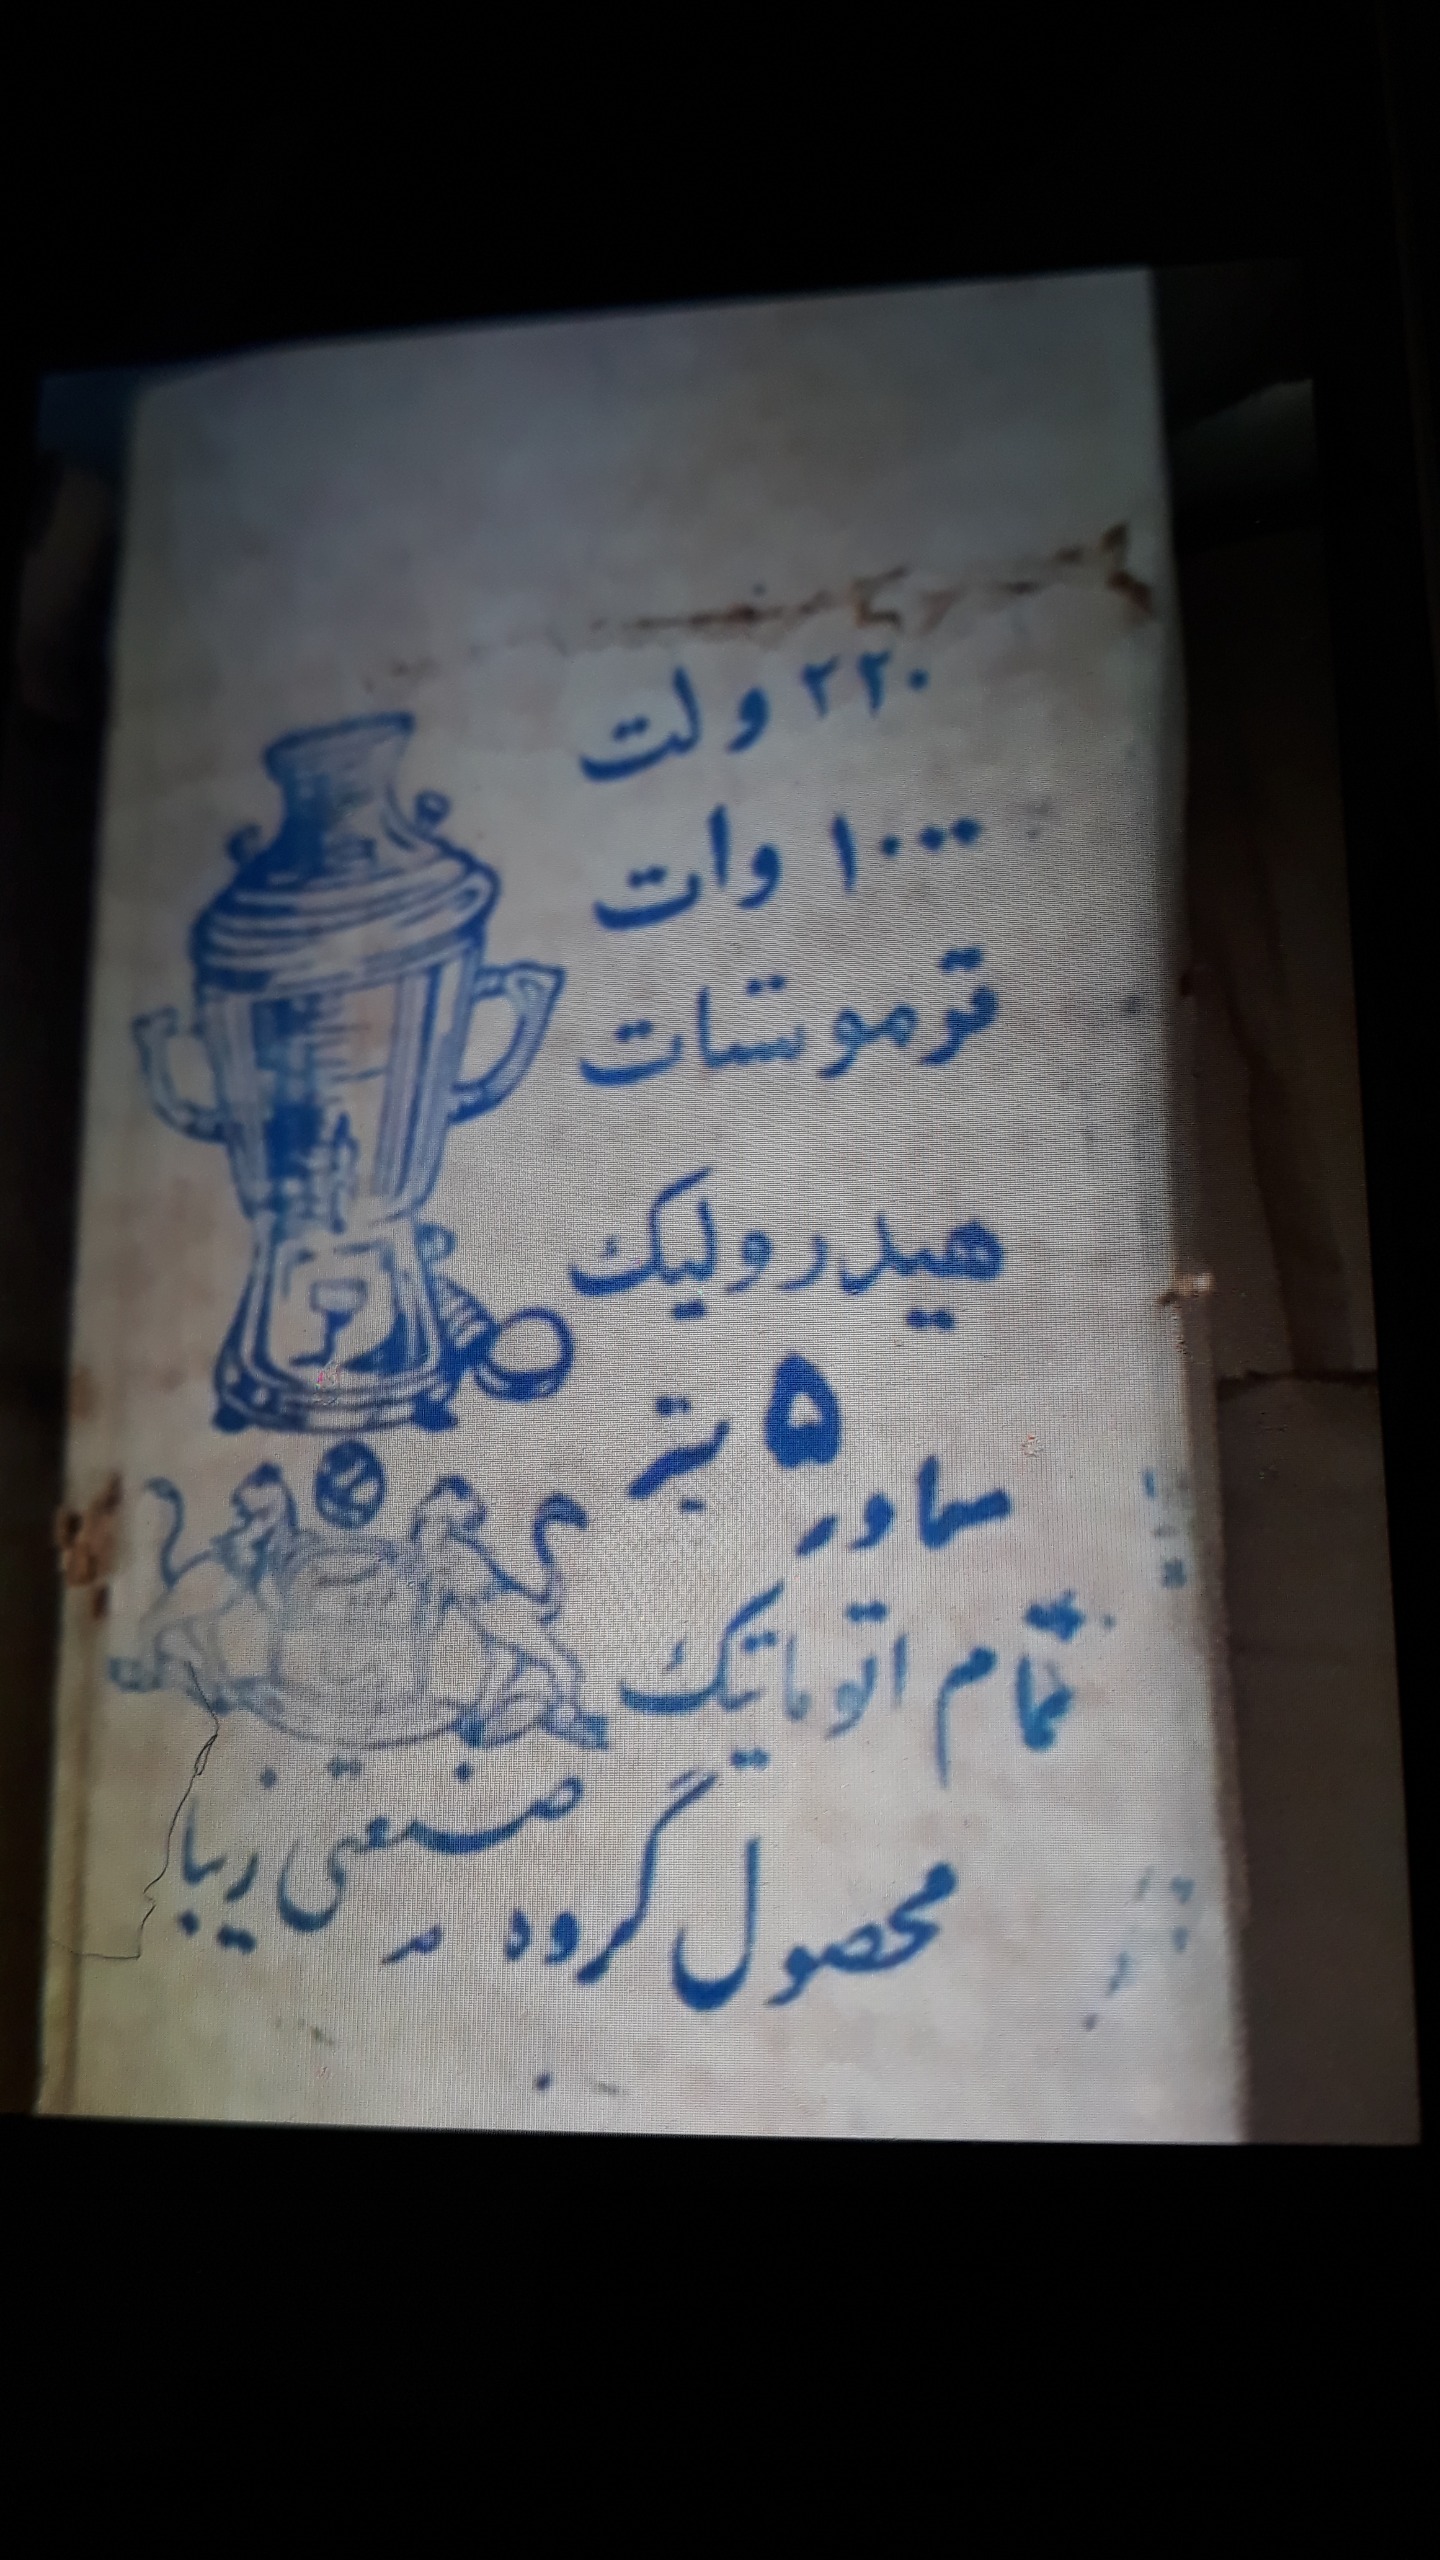 ۲۲۰ ولت
۱۰۰۰ وات
ترموستات
هیدرولیک
۵ لیتر
سماور
تمام اتوماتیک
محصول گروه صنعتی زیبا